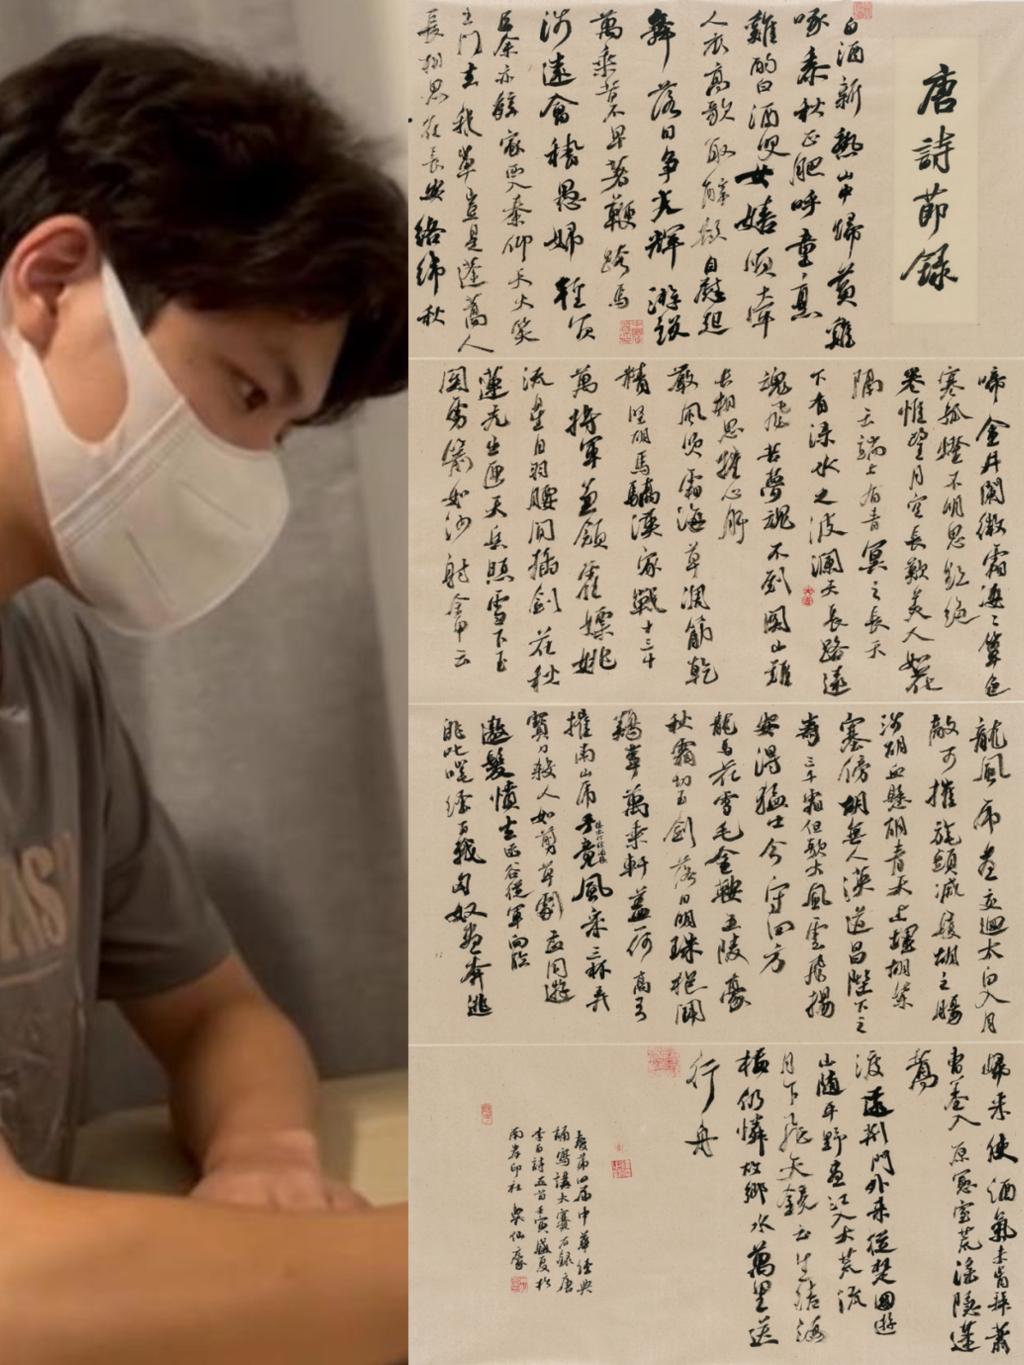 唐詩節錄
白酒新熟山中歸黃雞
啄黍秋正肥呼童烹
雞酌白酒兒女嬉咲牽
人衣高歌取醉欲自慰起
舞落日爭光輝游說
萬乘苦不早著鞭跨馬
涉遠會稽愚婦輕買
臣余亦辭家西入秦仰天大笑
出门去我輩豈是蓬蒿人
長相思在長安絡緯秋
啼金井闌微霜淒〻簟色
寒孤燈不明思欲絕
卷帷望月空長歎美人如花
隔云端上有青冥之長天
下有淥水之波瀾天長路遠
魂飛苦夢魂不到關山難
長相思摧心肝
嚴風吹霜海草凋筋乾
精堅胡馬驕漢家戰士三十
萬將軍兼領霍嫖姚
流星白羽腰間插劍花秋
蓮光出匣天兵照雪下玉
關虜箭如沙射金甲云
龍風虎盡交迴太白入月
敵可摧旄頭滅履胡之腸
涉胡血懸胡青天上埋胡紫
塞傍胡無人漢道昌陛下之
壽三千霜但歌大風雲飛揚
安得猛士兮守四方
龍馬花雪毛金鞍五陵豪
秋霜切玉劍落日明珠袍鬥
鷄事萬乘軒蓋一何高弓
摧南山虎手竟風采三杯弄
寶刀殺人如翦草劇孟同遊
遨發憤去函谷從軍向臨
洮叱咤經百戰匈奴盡奔逃
歸來使酒氣未肯拜蕭
曹羞入原憲室荒淫隱蓬
蒿
渡遠荊門外來從楚國遊
山隨平野盡江入大荒流
月下飛天鏡雲生結海
樓仍憐故鄉水萬里送
行舟
第四届中華經典
誦寫講大賽錄唐
李白詩五首壬寅盛夏於
南岸印社